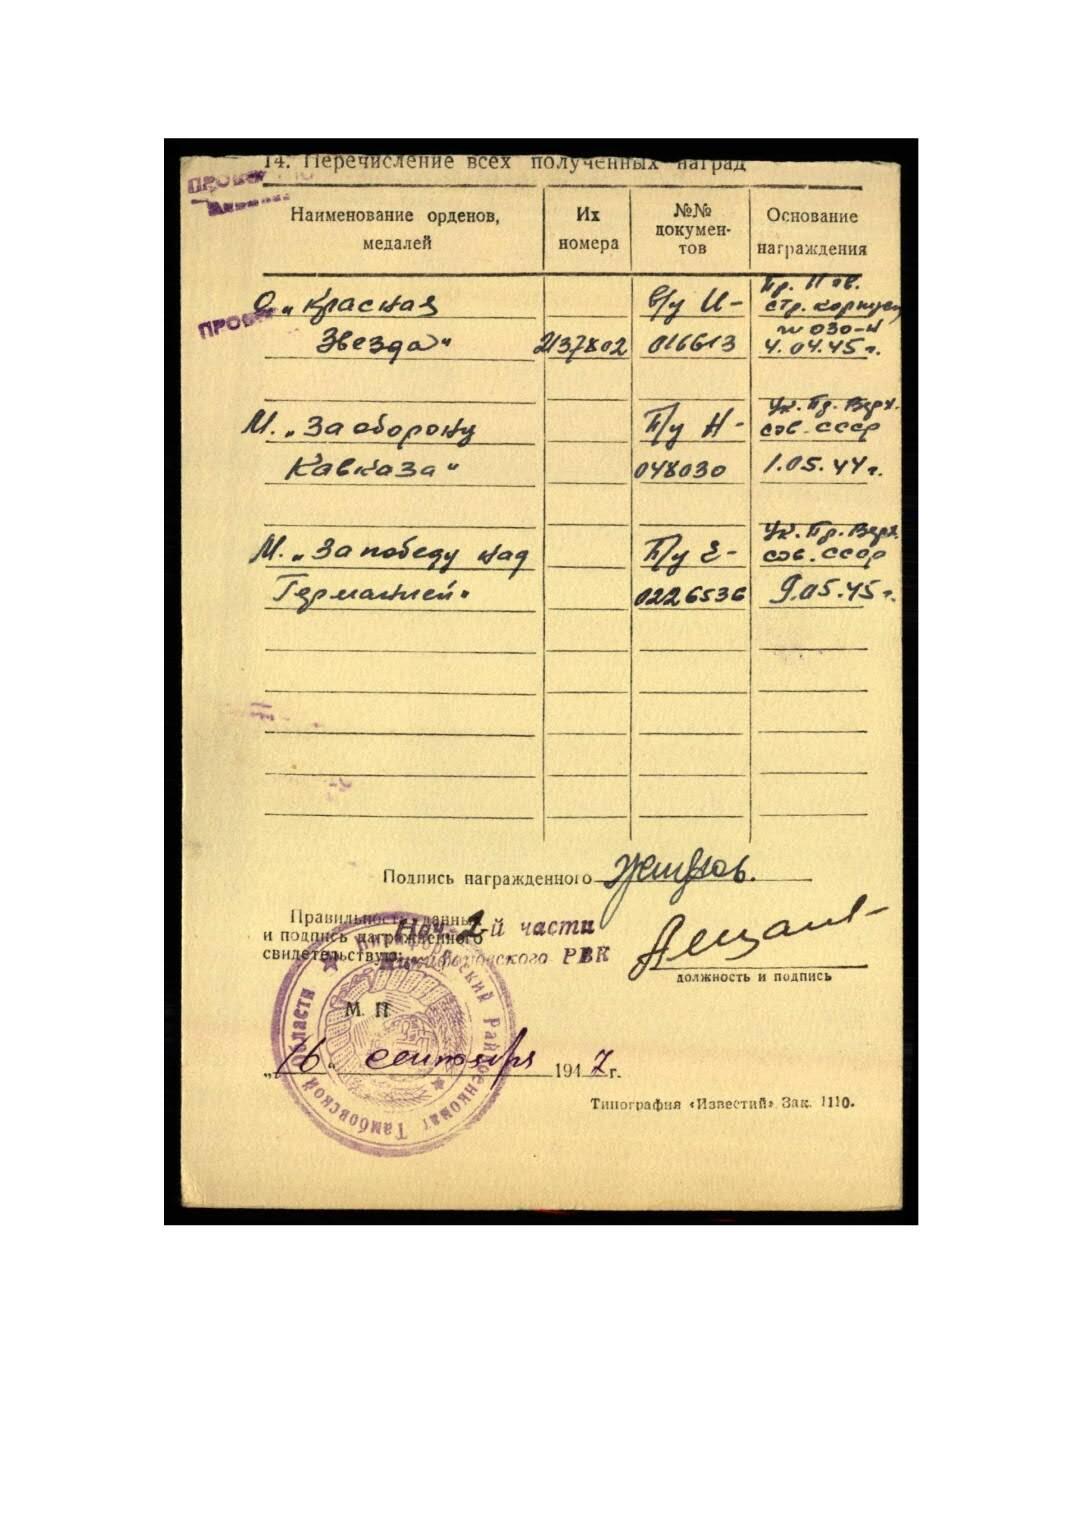 14. Перечисление всех полученных наград
Наименование орденов, медалей
Их номера
№№ докумен-тов
Основание награждения
О. „Красная
в/у И-
стр. корпусу
№ 030-н
Звезда“
2137802
016613
4.04.45 г.
М. „За оборону
П/у Н-
Ук. Пр. Верх.
сов. СССР
Кавказа“
048030
1.05.44 г.
М. „За победу над
П/у Е-
Ук. Пр. Верх.
сов. СССР
Германией“
0226536
9.05.45 г.
Подпись награжденного
Правильность данных
и подпись награжденного
свидетельствую:
Нач. 2-й части
Никифоровского РВК
должность и подпись
М. П
„16“ сентября 1947 г.
Райвоенкомат Тамбовской Области
Типография «Известий» Зак. 1110.